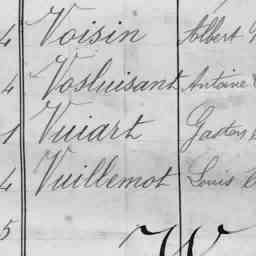 4 Voisin Albert
4 Vosluisant Antoine
1 Vuiart Gaston
4 Vuillemot Louis
5
W